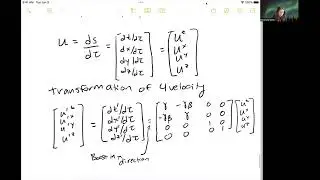 u = ds/dτ = [dt/dτ dx/dτ dy/dτ dz/dτ] = [uᵗ uˣ uʸ uᶻ]
transformation of 4 velocity
[u'ᵗ u'ˣ u'ʸ u'ᶻ] = [dt'/dτ dx'/dτ dy'/dτ dz'/dτ] = [γ -γβ 0 0 -γβ γ 0 0 0 0 1 0 0 0 0 1] [uᵗ uˣ uʸ uᶻ]
Boost in
direction